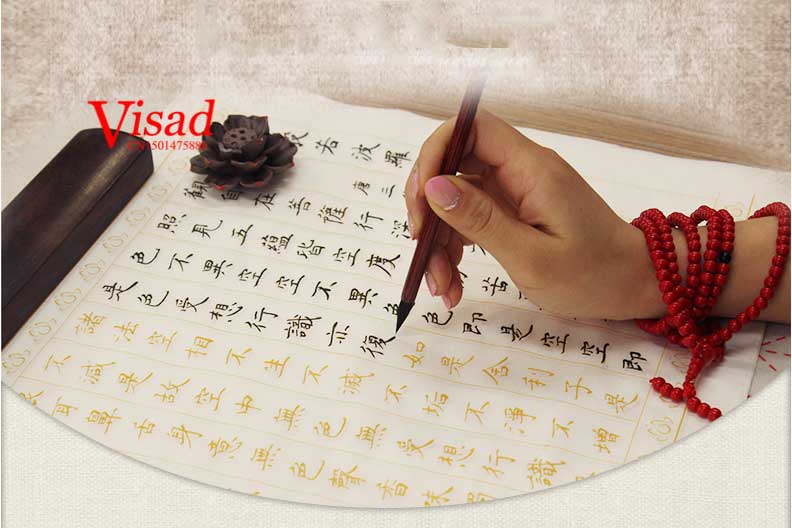 Visad
般若波羅
唐三
觀自在菩薩行深
照見五蘊皆空度苦
色不異空空不異色色即是空空即
是色受想行識亦復如是舍利子是
諸法空相不生不滅不垢不淨不增
不減是故空中無色無受想行識
耳鼻舌身意無色聲香味